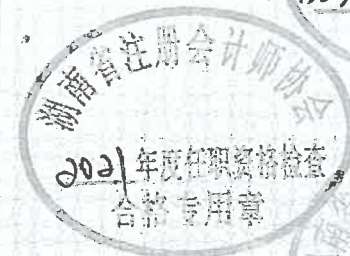 湖南省注册会计师协会
2021年度任职资格检查
合格专用章